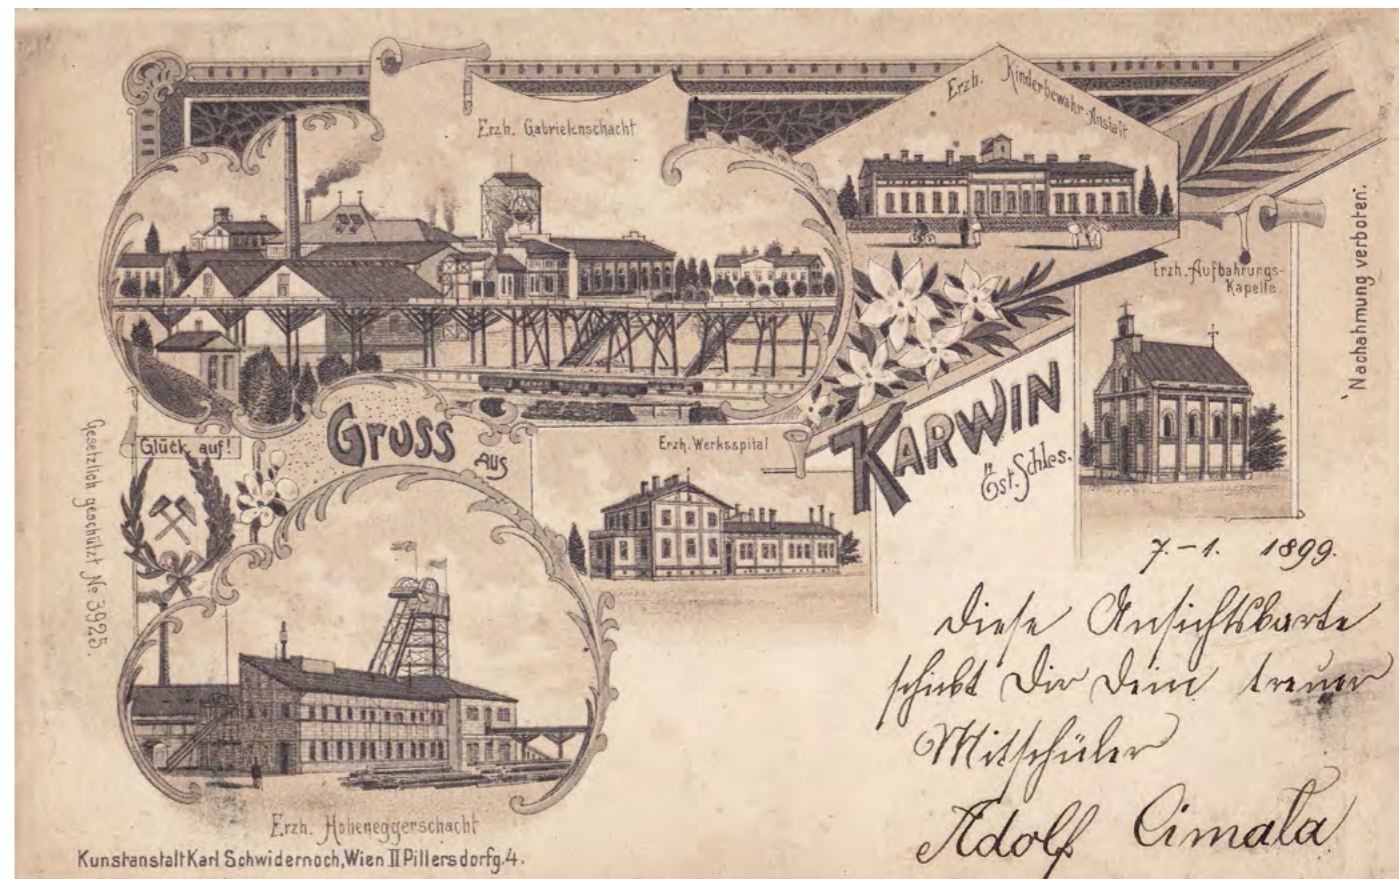 Erzh. Gabrielenschacht
Erzh. Kinderbewahr-Anstalt
Erzh. Aufbahrungs-
Kapelle.
Nachahmung verboten.
Glück auf!
Gruss
aus
KARWIN
Öst. Schles.
Erzh. Werksspital
Gesetzlich geschützt No 3925.
Erzh. Hoheneggerschacht
Kunstanstalt Karl Schwidernoch, Wien II Pillersdorfg. 4.
7.-1. 1899.
Diese Ansichtskarte
schickt Dir Dein treuer
Mitschüler
Adolf Cimala